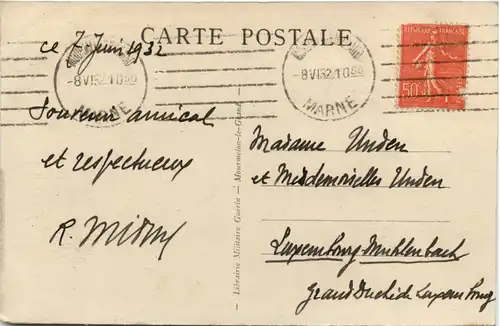 CARTE POSTALE
ce 7 Juin 1932
-8 VI 32 10
MARNE
-8 VI 32 10
MARNE
REPUBLIQUE FRANÇAISE
50
Souvenir amical
et respectueux
R.
Librairie Militaire Guérin — Mourmelon-le-Grand
Madame Unden
et Mademoiselles Unden
Luxembourg Muhlenbach
Grand Duché de Luxembourg